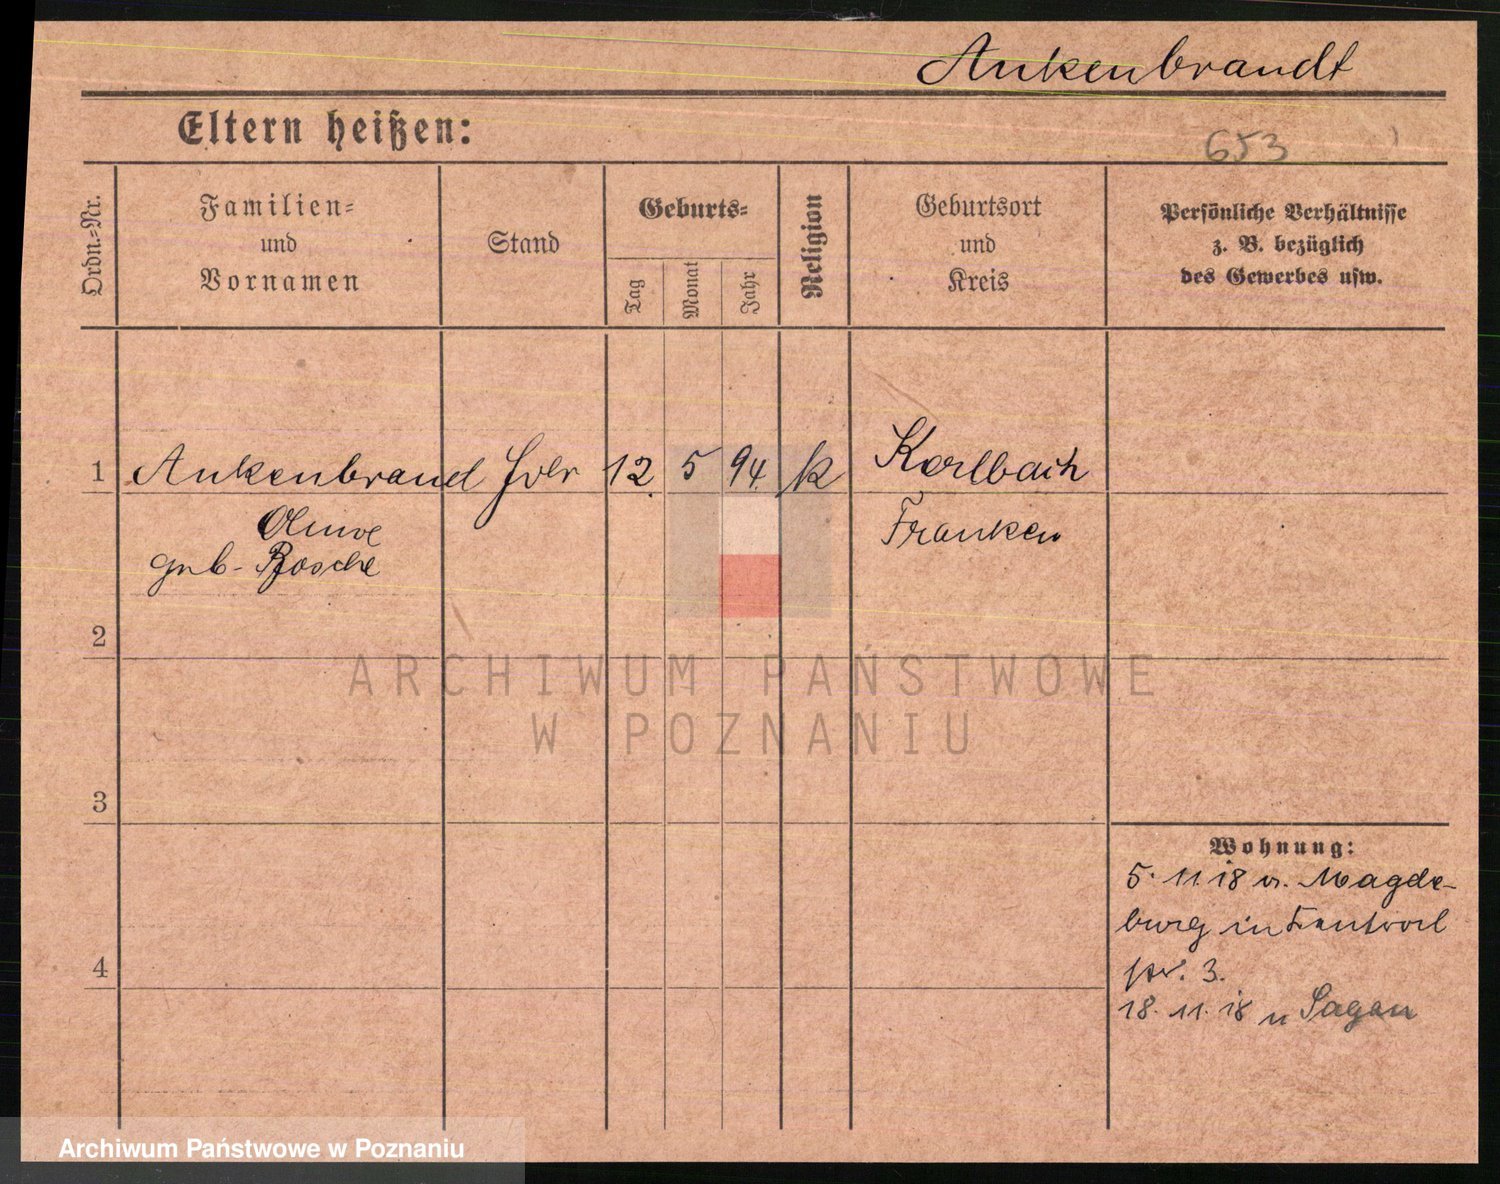 Ankenbrandt
Eltern heißen:
653
Ordn.-Nr.
Familien-
und
Vornamen
Stand
Geburts-
Tag
Monat
Jahr
Religion
Geburtsort
und
Kreis
Persönliche Verhältnisse
z. B. bezüglich
des Gewerbes usw.
1 Ankenbrand 12. 5 94. k Karlbach
Franken
geb. Rosche
2
ARCHIWUM PAŃSTWOWE
W POZNANIU
3
Wohnung:
5. 11. 18 v. Magde-
burg in
str. 3.
4
18. 11. 18 n Sagan
Archiwum Państwowe w Poznaniu